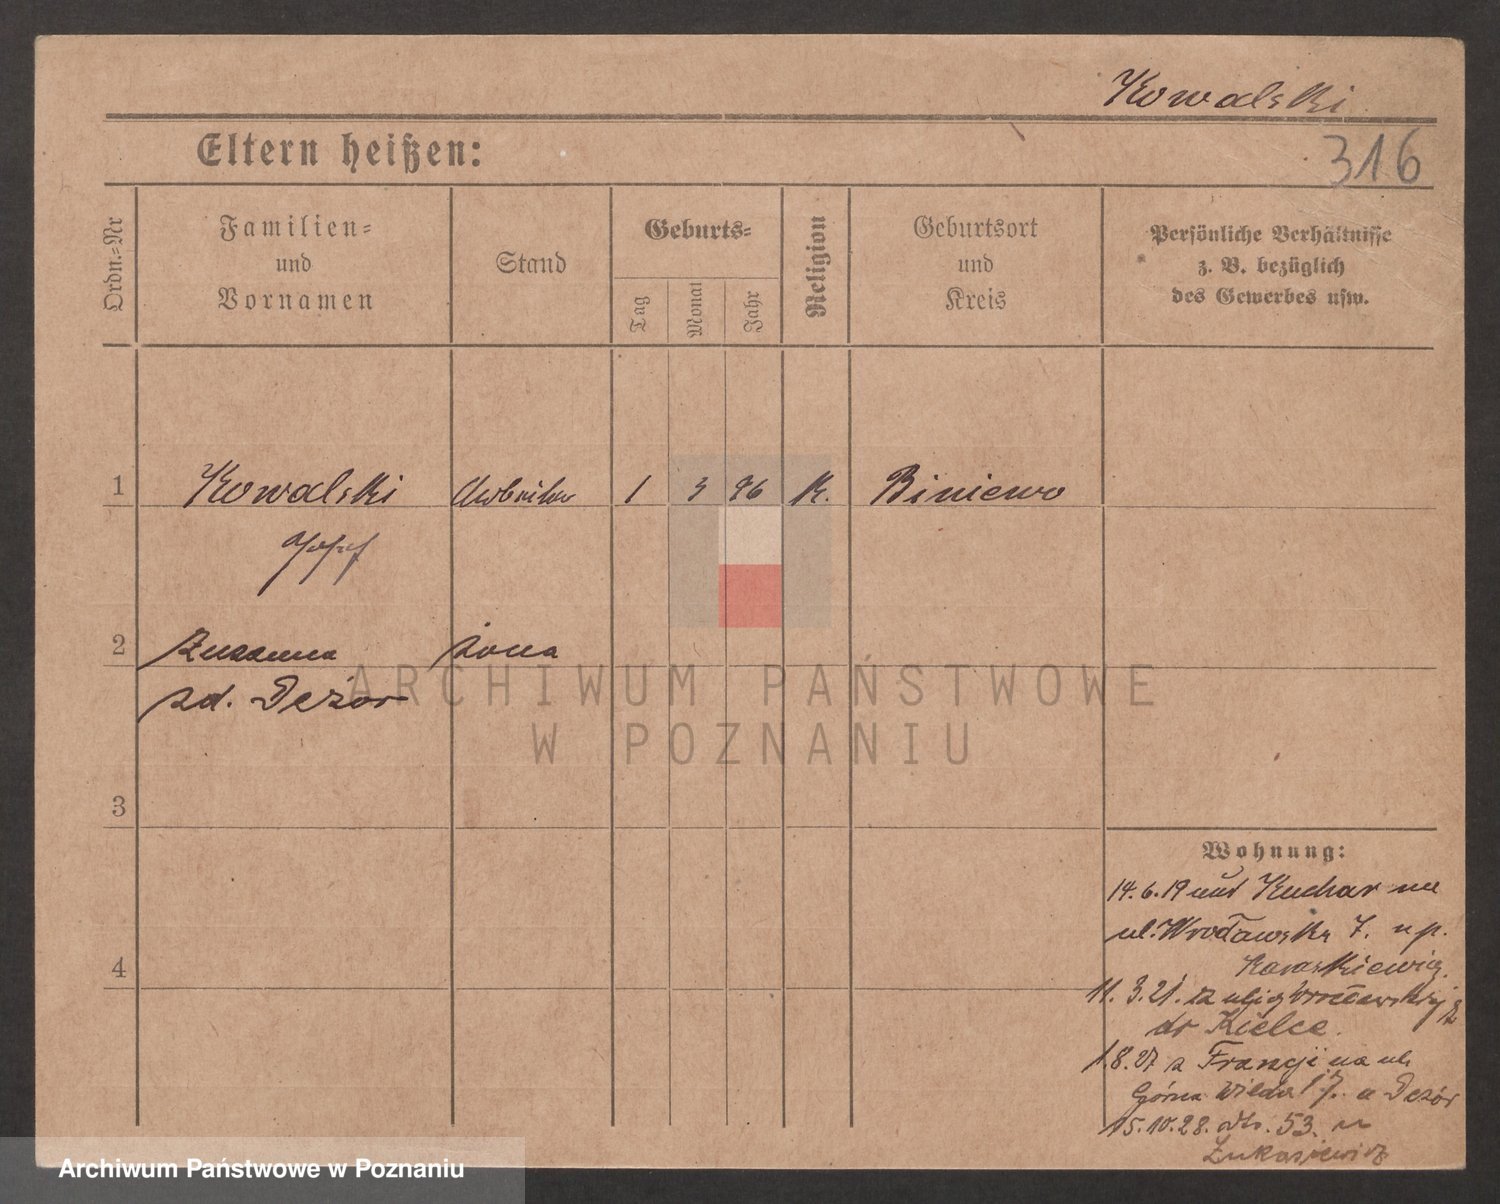 Kowalski
Eltern heißen:
316
Ordn.=Nr
Familien=
und
Vornamen
Stand
Geburts=
Tag
Monat
Jahr
Religion
Geburtsort
und
Kreis
Persönliche Verhältnisse
z. B. bezüglich
des Gewerbes usw.
1 Kowalski 1 3 96 K. Biniewo
Josef
2 Zuzanna żona
zd. Deżor
ARCHIWUM PAŃSTWOWE
W POZNANIU
3
Wohnung:
14.6.19 Kuchar na
ul. Wrocławska 7. u p.
4
11.3.21. z ulicy Wrocławskiej
do Kielce.
1.8.27 z Francji na ul.
Górna Wilda 17. u Deżór
15.10.28. dto. 53. u
Łukasiewicz
Archiwum Państwowe w Poznaniu